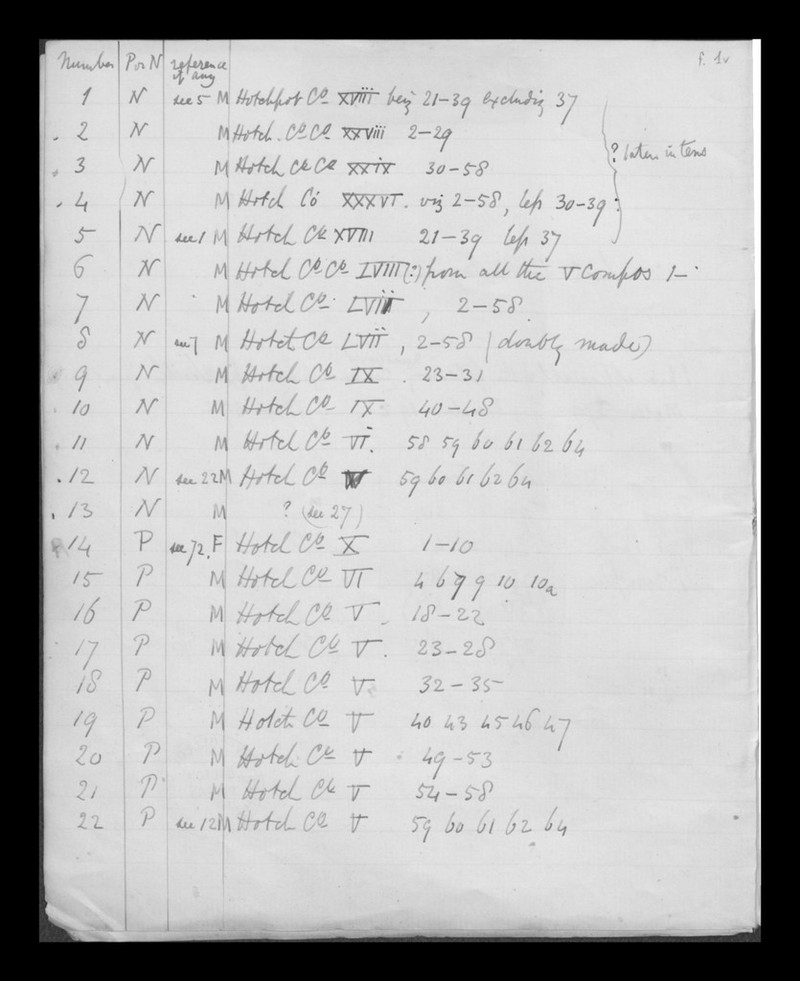 f. 1v
Number P or N reference if any
1 N see 5 M Hotchpot Co XVIII being 21-39 excluding 37
2 N M Hotch. Co Co XXVIII 2-29
? taken in tens
3 N M Hotch Co Co XXIX 30-58
4 N M Hotch Co XXXVI. viz 2-58, less 30-39
5 N see 1 M Hotch Co XVIII 21-39 less 37
6 N M Hotch Co Co LVIII (?) from all the V Compos
7 N M Hotch Co LVII, 2-58
8 N see 7 M Hotch Co LVII, 2-58 (doubly made)
9 N M Hotch Co IX. 23-31
10 N M Hotch Co IX 40-48
11 N M Hotch Co VI. 58 59 60 61 62 64
12 N see 22 M Hotch Co V 59 60 61 62 64
13 N M ? (see 27)
14 P see 72. F Hotch Co X 1-10
15 P M Hotch Co VI 4 6 7 9 10 10a
16 P M Hotch Co V. 18-22
17 P M Hotch Co V. 23-28
18 P M Hotch Co V 32-35
19 P M Hotch Co V 40 43 45 46 47
20 P M Hotch Co V 49-53
21 P M Hotch Co V 54-58
22 P see 12 M Hotch Co V 59 60 61 62 64